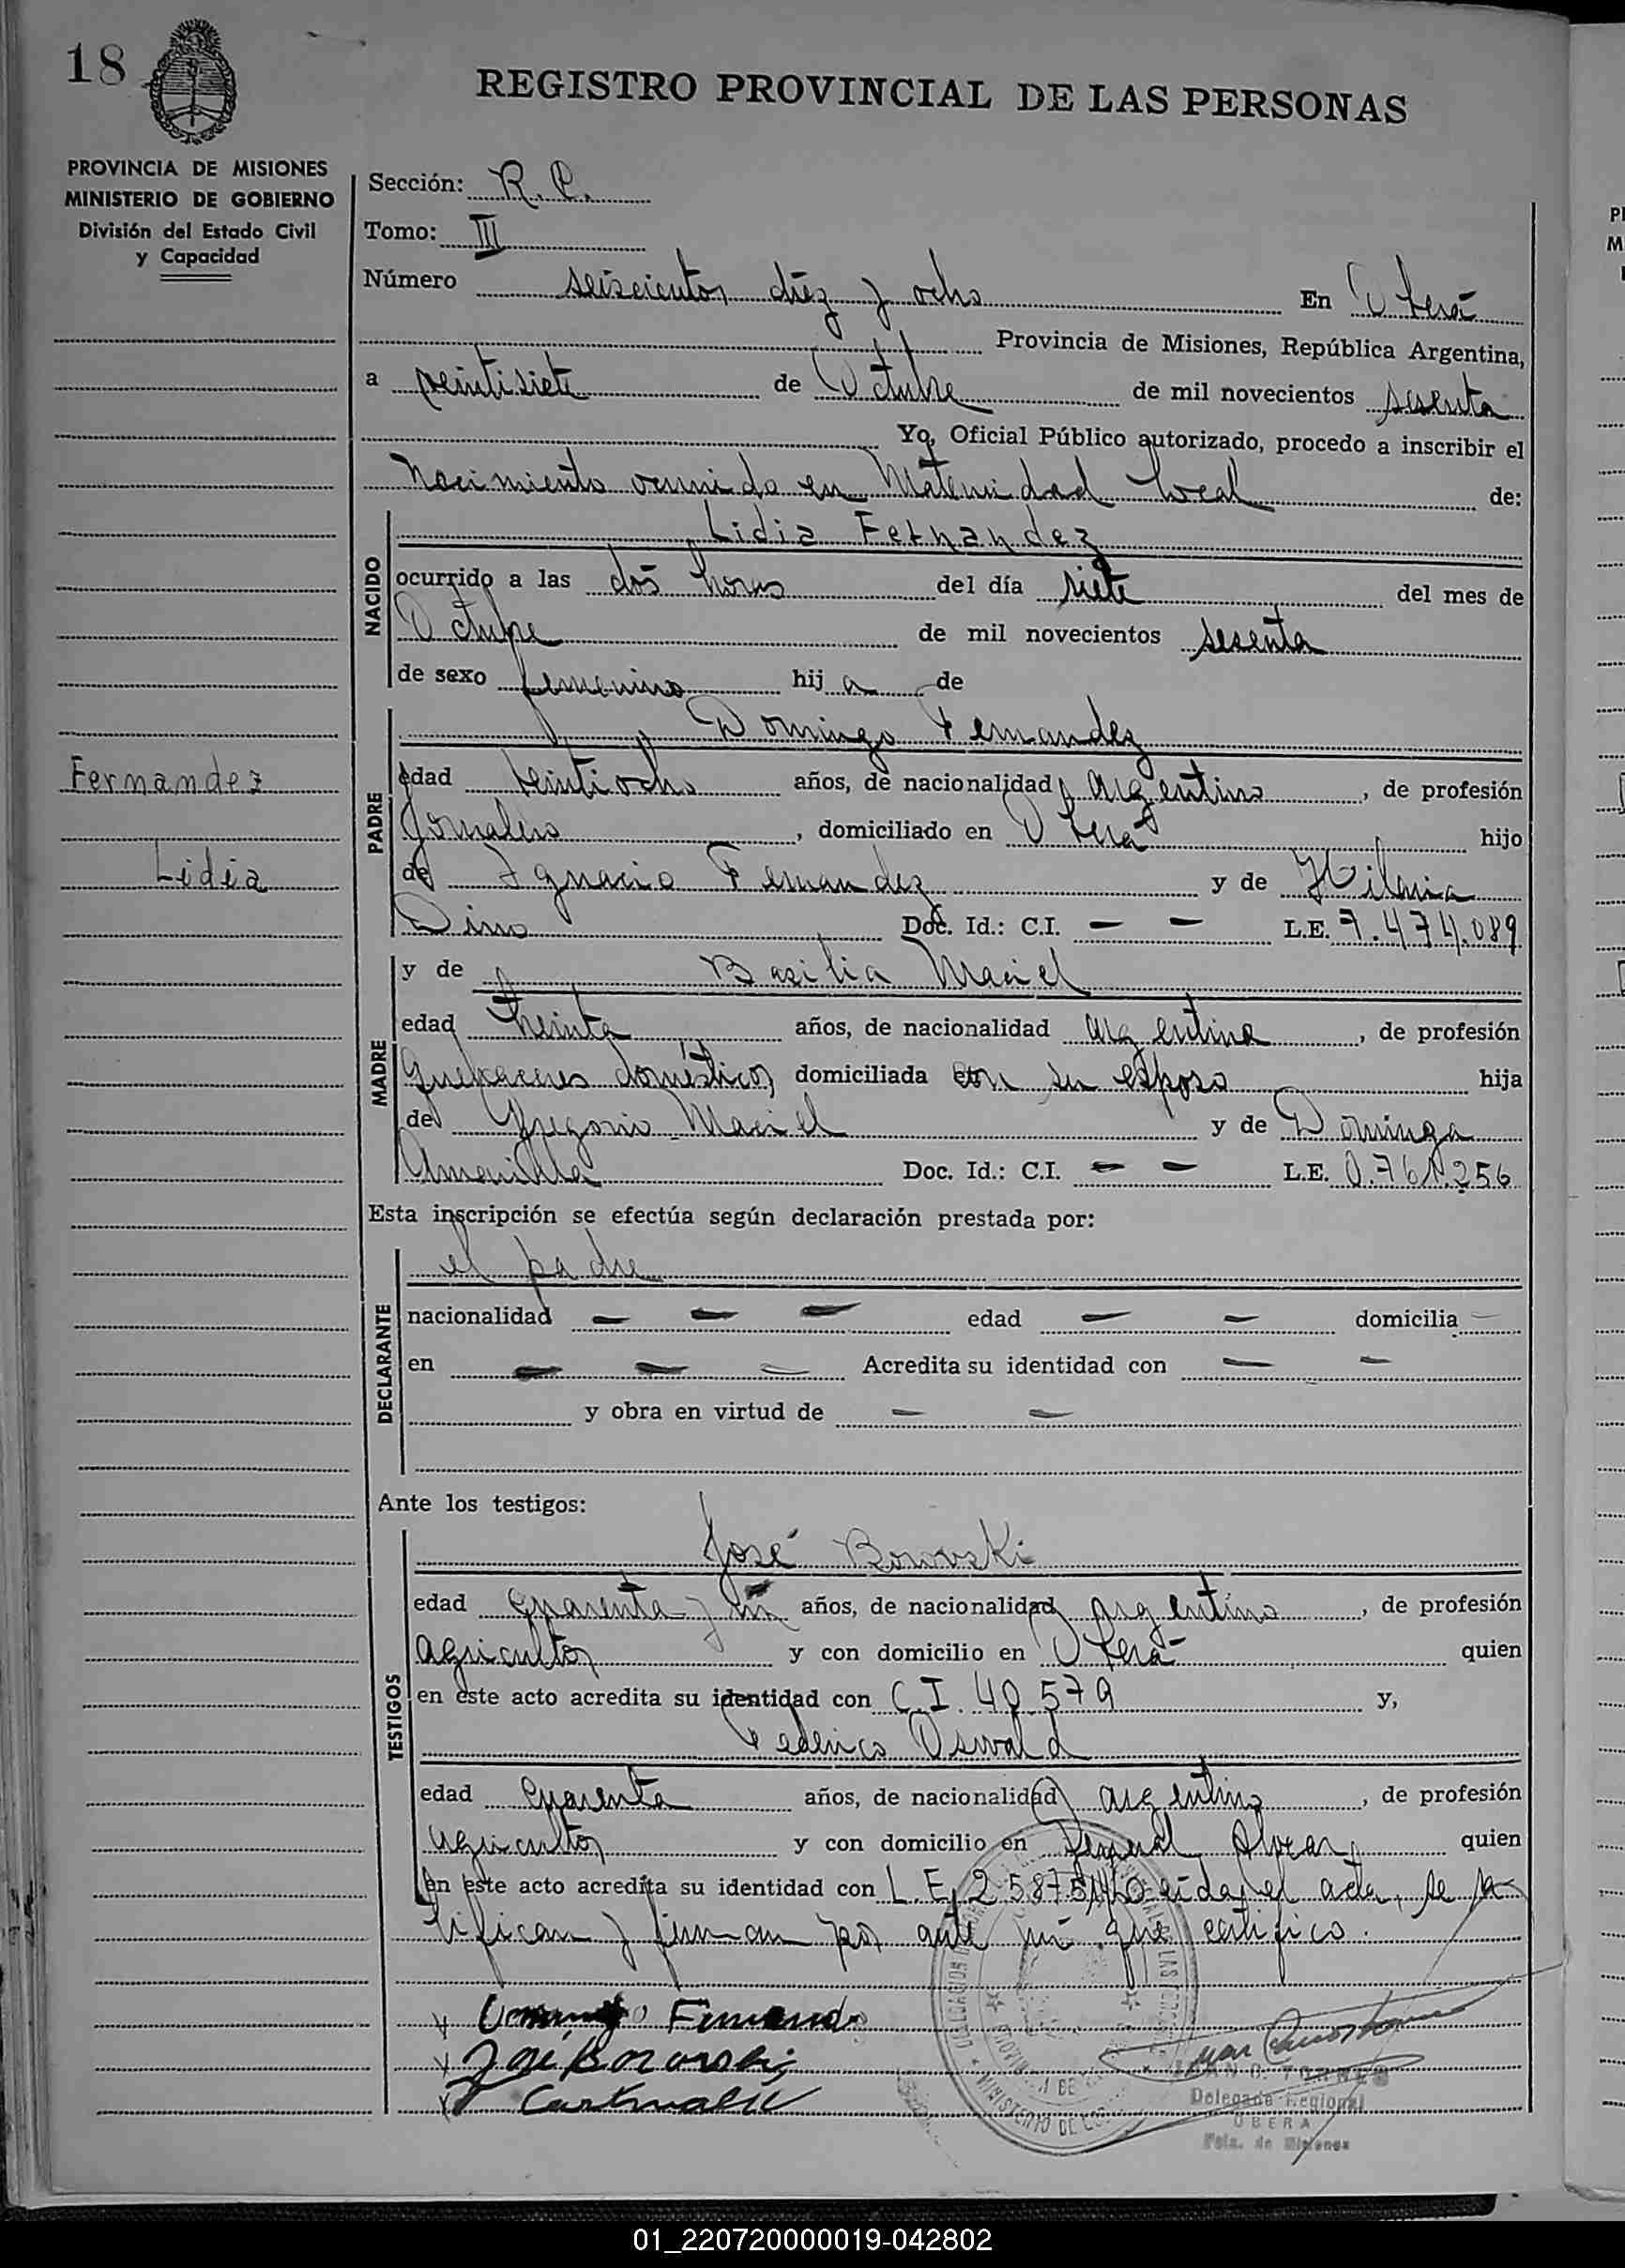 18
REGISTRO PROVINCIAL DE LAS PERSONAS
PROVINCIA DE MISIONES
MINISTERIO DE GOBIERNO
División del Estado Civil
y Capacidad
Sección: R. C.
Tomo: III
Número seiscientos diez y ocho En Oberá
Provincia de Misiones, República Argentina,
a veintisiete de Octubre de mil novecientos sesenta
Yo, Oficial Público autorizado, procedo a inscribir el
Nacimiento ocurrido en Maternidad local de:
NACIDO
Lidia Fernandez
ocurrido a las dos horas del día siete del mes de
Octubre de mil novecientos sesenta
de sexo femenino hij a de
PADRE
Domingo Fernandez
edad veintiocho años, de nacionalidad argentina, de profesión
Jornalero, domiciliado en Oberá hijo
de Ignacio Fernandez y de
Doc. Id.: C.I. — — L.E. 7.474.089
Fernandez
Lidia
MADRE
y de Basilia Maciel
edad treinta años, de nacionalidad argentina, de profesión
Quehaceres domésticos domiciliada con su esposo hija
de Gregorio Maciel y de Dominga
Amarilla Doc. Id.: C.I. — — L.E. 0.761.256
Esta inscripción se efectúa según declaración prestada por:
DECLARANTE
el padre
nacionalidad — — — edad — — domicilia —
en — — — Acredita su identidad con — —
y obra en virtud de — —
Ante los testigos:
TESTIGOS
José Borowski
edad cuarenta y un años, de nacionalidad argentino, de profesión
agricultor y con domicilio en Oberá quien
en este acto acredita su identidad con C.I. 40.579 y,
Federico Oswald
edad cuarenta años, de nacionalidad argentino, de profesión
agricultor y con domicilio en General Alvear quien
en este acto acredita su identidad con L.E. Leída el acta, se ra
tifican y firman por ante mí que certifico.
JUAN C. TORRES
Delegado Regional
OBERA
Pcia. de Misiones
01_220720000019-042802